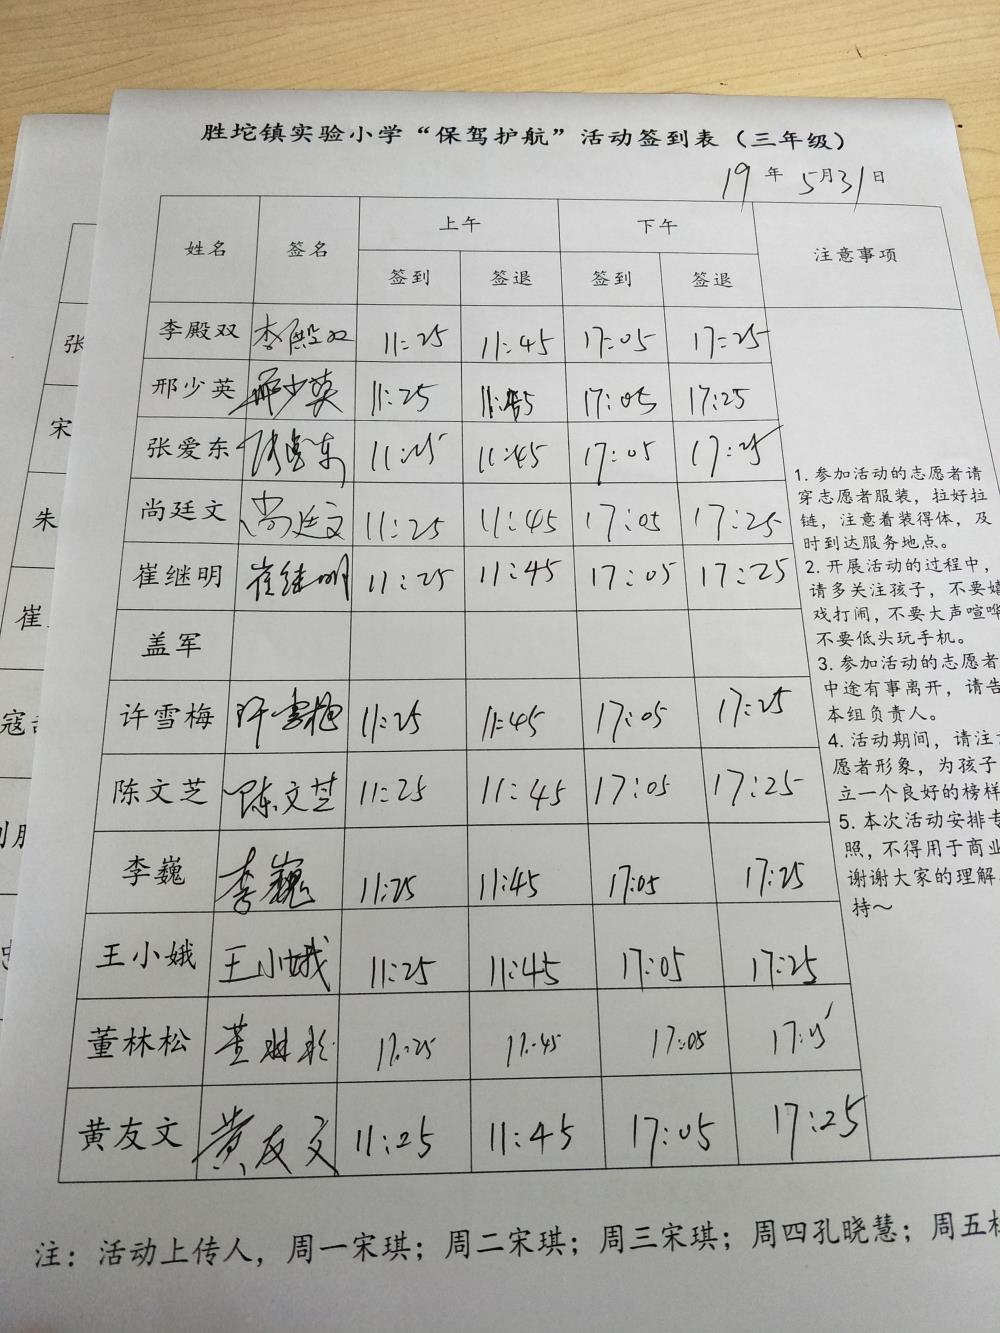 胜坨镇实验小学“保驾护航”活动签到表（三年级）
19年 5月31日
姓名 签名 上午 下午 注意事项
签到 签退 签到 签退
李殿双 李殿双 11:25 11:45 17:05 17:25
邢少英 邢少英 11:25 11:45 17:05 17:25
张爱东 张爱东 11:25 11:45 17:05 17:25
尚廷文 尚廷文 11:25 11:45 17:05 17:25
崔继明 崔继明 11:25 11:45 17:05 17:25
盖军
许雪梅 许雪梅 11:25 11:45 17:05 17:25
陈文芝 陈文芝 11:25 11:45 17:05 17:25
李巍 李巍 11:25 11:45 17:05 17:25
王小娥 王小娥 11:25 11:45 17:05 17:25
董林松 董林松 11:25 11:45 17:05 17:25
黄友文 黄友文 11:25 11:45 17:05 17:25
1. 参加活动的志愿者请
穿志愿者服装，拉好拉
链，注意着装得体，及
时到达服务地点。
2. 开展活动的过程中，
请多关注孩子，不要嬉
戏打闹，不要大声喧哗
不要低头玩手机。
3. 参加活动的志愿者
中途有事离开，请告
本组负责人。
4. 活动期间，请注意
愿者形象，为孩子
立一个良好的榜样
5. 本次活动安排专
照，不得用于商业
谢谢大家的理解
持～
注：活动上传人，周一宋琪；周二宋琪；周三宋琪；周四孔晓慧；周五
张
宋
朱
崔
寇